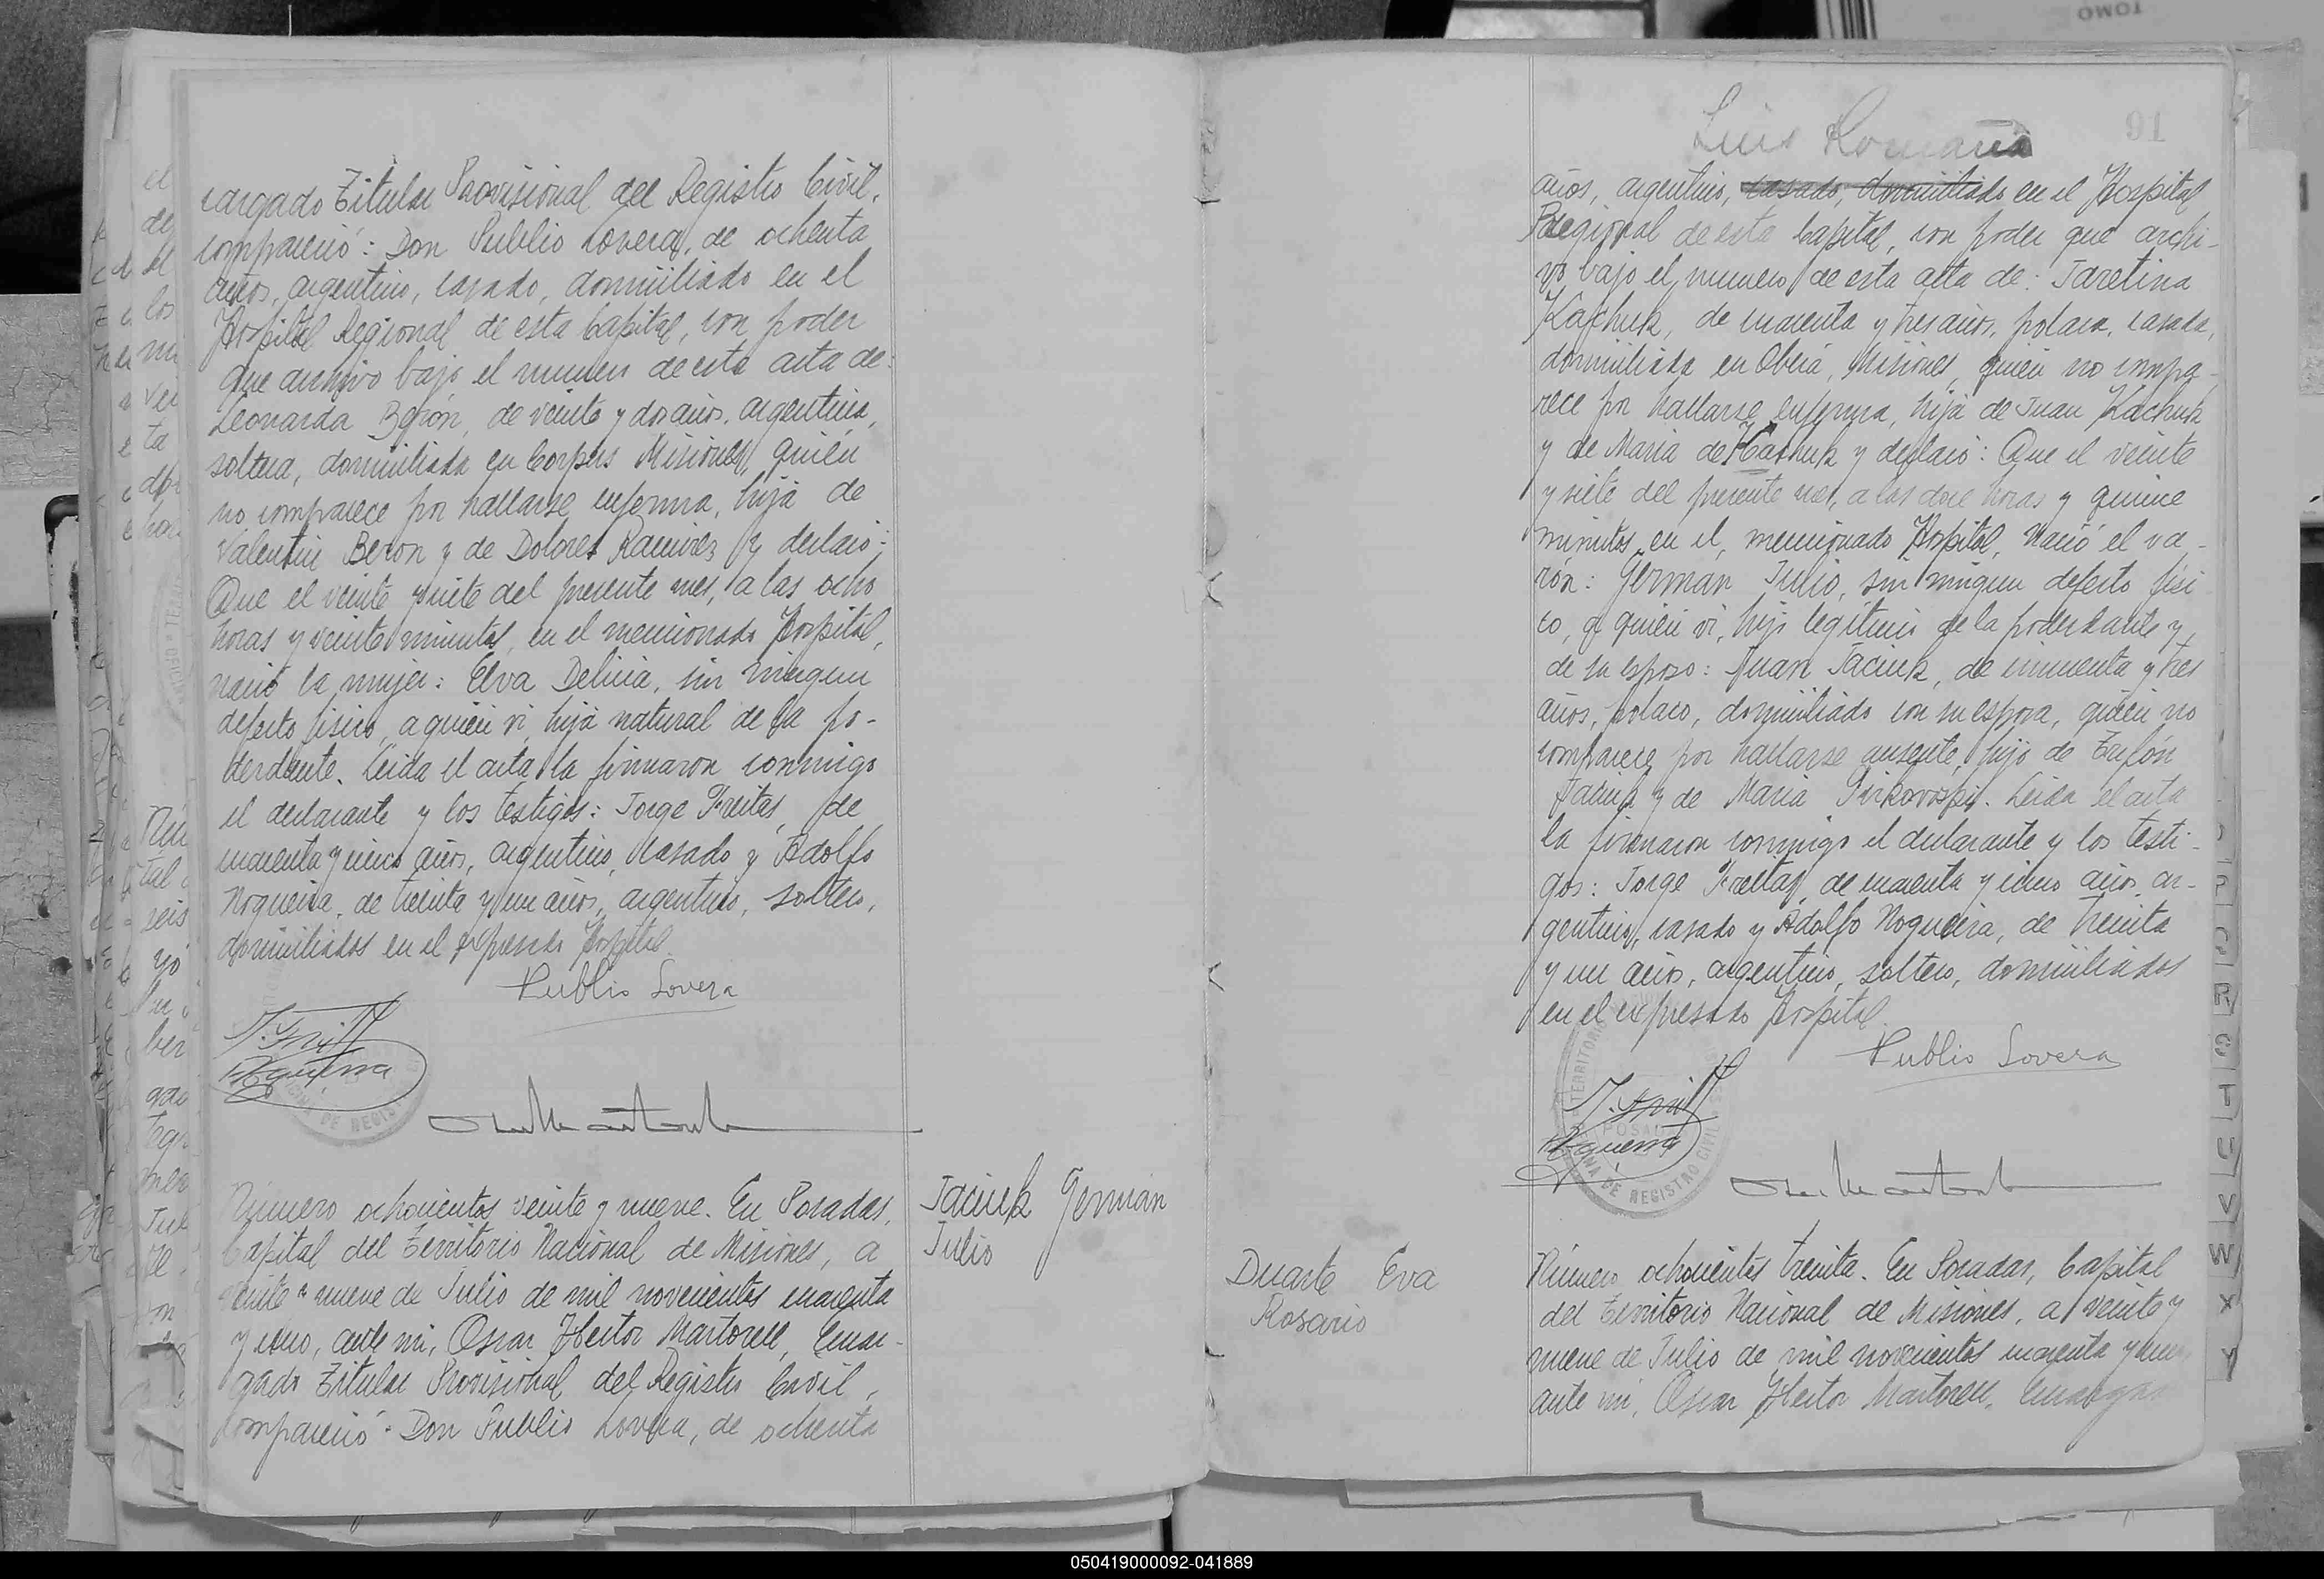 TOMO
cargado Titular Provisional del Registro Civil,
compareció: Don Publio Lovera, de ochenta
años, argentino, casado, domiciliado en el
Hospital Regional de esta Capital, con poder
que archivo bajo el numero de esta acta de:
Leonarda Berón, de veinte y dos años, argentina,
soltera, domiciliada en Corpus Misiones, quién
no comparece por hallarse enferma, hija de
Valentin Beron y de Dolores Ramirez y declaró:
Que el veinte y siete del presente mes, a las ocho
horas y veinte minutos, en el mencionado Hospital,
nació la mujer: Elva Delicia, sin ningun
defecto fisico, a quién vi, hija natural de la po-
derdante. Leida el acta la firmaron conmigo
el declarante y los testigos: Jorge Freitas, de
cuarenta y cinco años, argentino, casado y Adolfo
Nogueira, de treinta y un años, argentino, soltero,
domiciliados en el expresado Hospital.
Publio Lovera
Número ochocientos veinte y nueve. En Posadas,
Capital del Territorio Nacional de Misiones, a
veinte y nueve de Julio de mil novecientos cuarenta
y uno, ante mi, Oscar Hector Martorell, Encar-
gado Titular Provisional del Registro Civil,
compareció: Don Publio Lovera, de ochenta
Jaciuk German
Julio
91
Luis Romaña
años, argentino, casado, domiciliado en el Hospital
Regional de esta Capital, con poder que archi-
vo bajo el numero de esta acta de: Jaretina
Kachuk, de cuarenta y tres años, polaca, casada,
domiciliada en Oberá, Misiones, quién no compa-
rece por hallarse enferma, hija de Juan Kachuk
y de Maria de Kachuk y declaró: Que el veinte
y siete del presente mes, a las doce horas y quince
minutos, en el mencionado Hospital, nació el va-
rón: Germán Julio, sin ningun defecto fisi
co, a quién vi, hijo legitimo de la poderdante y
de su esposo: Juan Jaciuk, de cincuenta y tres
años, polaco, domiciliado con su esposa, quién no
comparece por hallarse ausente, hijo de Trifón
Jaciuk y de Maria. Leida el acta
la firmaron conmigo el declarante y los testi-
gos: Jorge Freitas, de cuarenta y cinco años, ar-
gentino, casado y Adolfo Nogueira, de treinta
y un años, argentino, soltero, domiciliados
en el expresado Hospital.
Publio Lovera
TERRITORIO
POSADAS
DE REGISTRO CIVIL
Duarte Eva
Rosario
Número ochocientos treinta. En Posadas, Capital
del Territorio Nacional de Misiones, a veinte y
nueve de Julio de mil novecientos cuarenta y uno
ante mi, Oscar Hector Martorell, Encarga
P
Q
R
S
T
U
V
W
X
Y
050419000092-041889